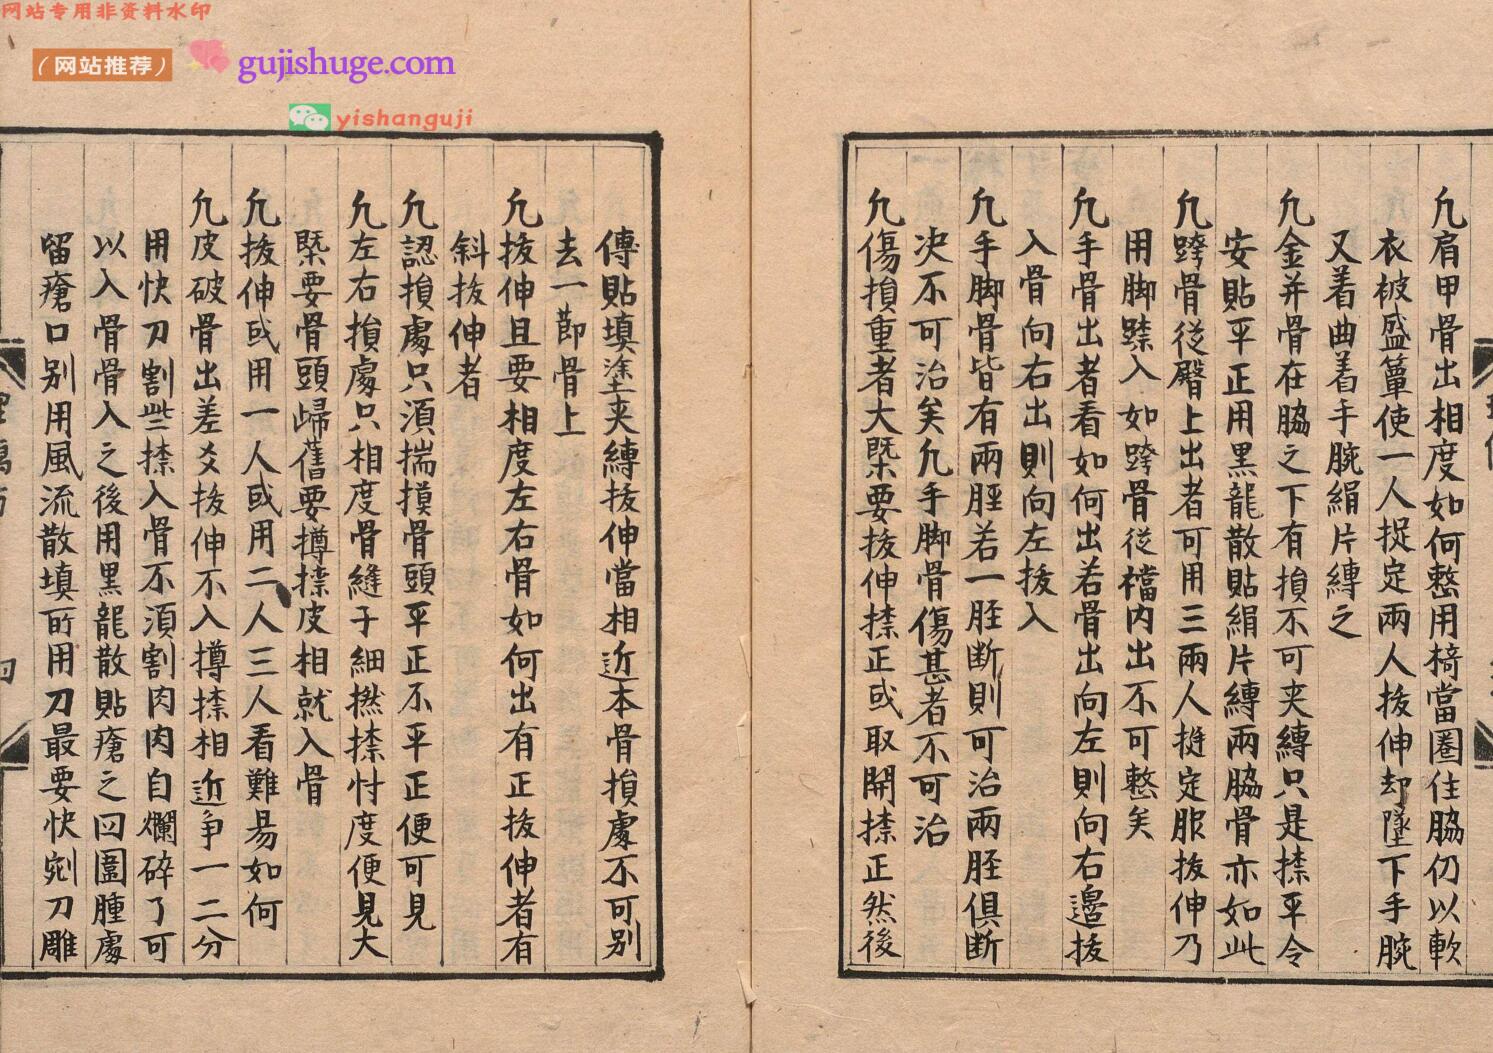 网站专用非资料水印
（网站推荐）
gujishuge.com
yishanguji
凢肩甲骨出相度如何整用椅當圈住脇仍以軟
衣被盛簟使一人捉定兩人拔伸却墜下手腕
又着曲着手腕絹片縳之
凢金井骨在脇之下有損不可夾縳只是捺平令
安貼平正用黑龍散貼絹片縳兩脇骨亦如此
凢跨骨從臀上出者可用三兩人挺定服拔伸乃
用脚䠖入如跨骨從襠内出不可整矣
凢手骨出者看如何出若骨出向左則向右邉拔
入骨向右出則向左拔入
凢手脚骨皆有兩胫若一胫断則可治兩胫俱断
决不可治矣凢手脚骨傷甚者不可治
凢傷損重者大槩要拔伸捺正或取開捺正然後
傳貼填塗夾縳拔伸當相近本骨損處不可别
去一莭骨上
凢拔伸且要相度左右骨如何出有正拔伸者有
斜拔伸者
凢認損處只湏揣摸骨頭平正不平正便可見
凢左右損處只相度骨縫子細撚捺忖度便見大
槩要骨頭歸舊要撙捺皮相就入骨
凢拔伸或用一人或用二人三人看難昜如何
凢皮破骨出差爻拔伸不入撙捺相近争一二分
用快刀割些捺入骨不湏割肉肉自爛碎了可
以入骨骨入之後用黑龍散貼瘡之囙圍腫處
留瘡口别用風流散填所用刀最要快剜刀雕